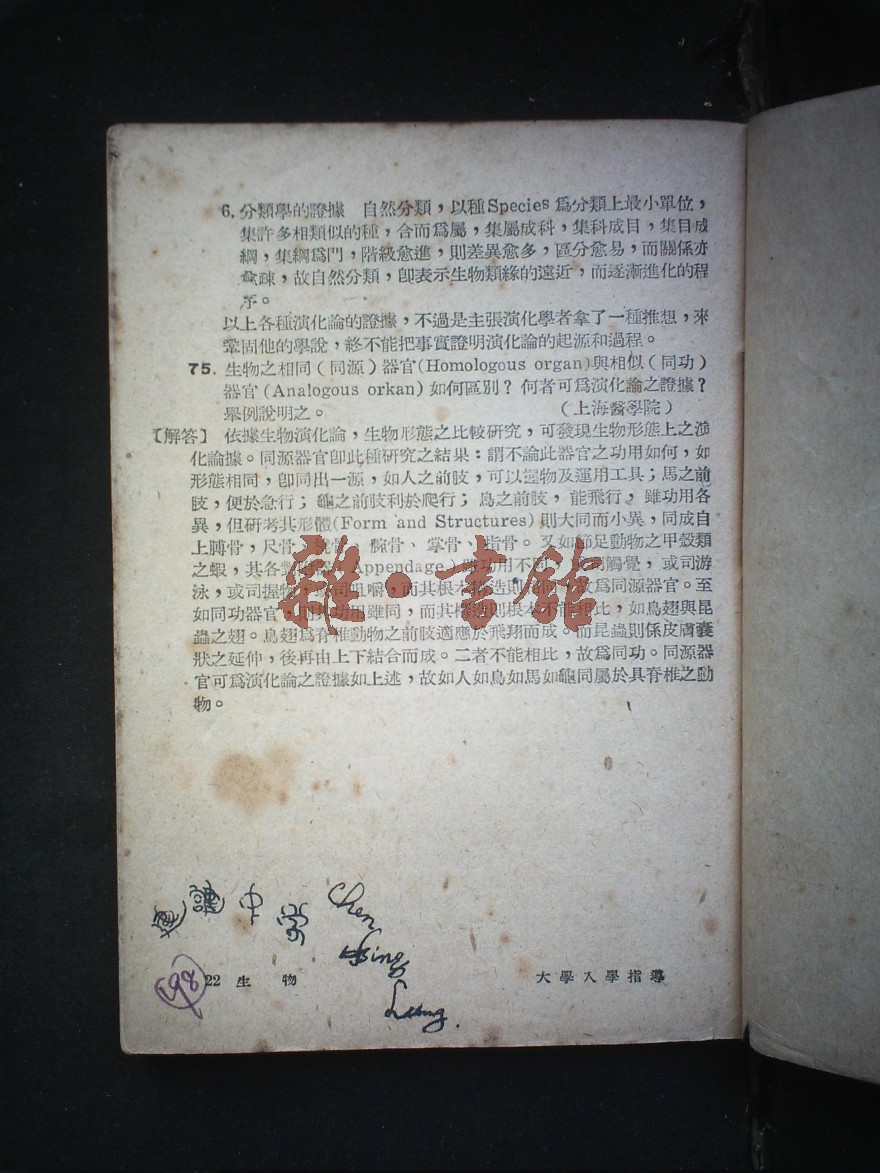 6. 分類學的證據　自然分類，以種Species 爲分類上最小單位，
集許多相類似的種，合而爲屬，集屬成科，集科成目，集目成
綱，集綱爲門，階級愈進，則差異愈多，區分愈易，而關係亦
愈疎，故自然分類，卽表示生物類緣的遠近，而逐漸進化的程
序。
以上各種演化論的證據，不過是主張演化學者拿了一種推想，來
鞏固他的學說，終不能把事實證明演化論的起源和過程。
75. 生物之相同（同源）器官(Homologous organ)與相似（同功）
器官(Analogous orkan)如何區別？何者可爲演化論之證據？
舉例說明之。　（上海醫學院）
【解答】 依據生物演化論，生物形態之比較研究，可發現生物形態上之演
化論據。同源器官卽此種研究之結果：謂不論此器官之功用如何，如
形態相同，卽同出一源，如人之前肢，可以握物及運用工具；馬之前
肢，便於急行；龜之前肢利於爬行；鳥之前肢，能飛行，雖功用各
異，但研考其形體(Form and Structures)則大同而小異，同成自
上膊骨，尺骨、橈骨、腕骨、掌骨、指骨。又如節足動物之甲殼類
之蝦，其各對附器(Appendage)雖功用不同，或司觸覺，或司游
泳，或司握物，或司咀嚼，而其根本構造則相同，故爲同源器官。至
如同功器官，則其功用雖同，而其構造則根本不能相比，如鳥翅與昆
蟲之翅。鳥翅爲脊椎動物之前肢適應於飛翔而成。而昆蟲則係皮膚囊
狀之延伸，後再由上下結合而成。二者不能相比，故爲同功。同源器
官可爲演化論之證據如上述，故如人如鳥如馬如龜同屬於具脊椎之動
物。
雜·書館
中學
Chen
Hsing
Lung.
198
22 生物
大學入學指導